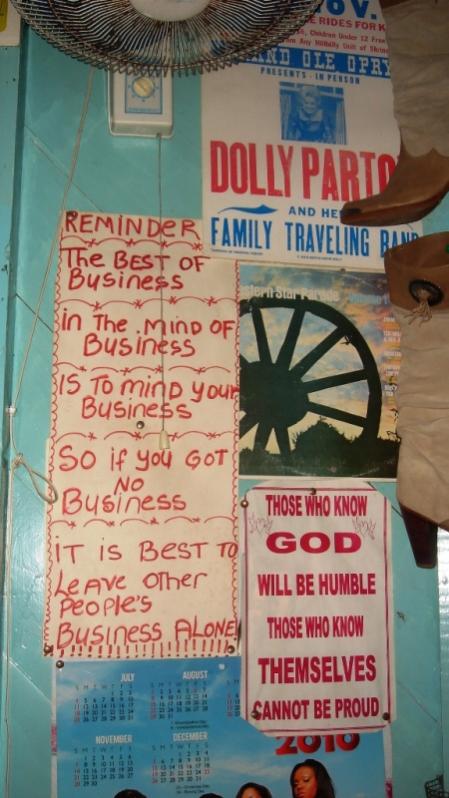 OV.
E RIDES FOR K
Children Under 12 Free
om Any Hillbilly Unit of Shrine
AND OLE OPRY
PRESENTS - IN PERSON
DOLLY PARTO
AND HE
FAMILY TRAVELING BAND
REMINDER
The BEST OF
Business
in The mind OF
Business
IS To minD your
Business
SO if you GOT
NO
Business
iT is BEST TO
LeAve oTher
PeoPLe's
Business ALONE
!!!!!!!!!!!!!!!!
tern Star Parade
THOSE WHO KNOW
GOD
WILL BE HUMBLE
THOSE WHO KNOW
THEMSELVES
CANNOT BE PROUD
JULY AUGUST
S M T W T F S S M T W T F S
NOVEMBER DECEMBER
S M T W T F S S M T W T F S
2010